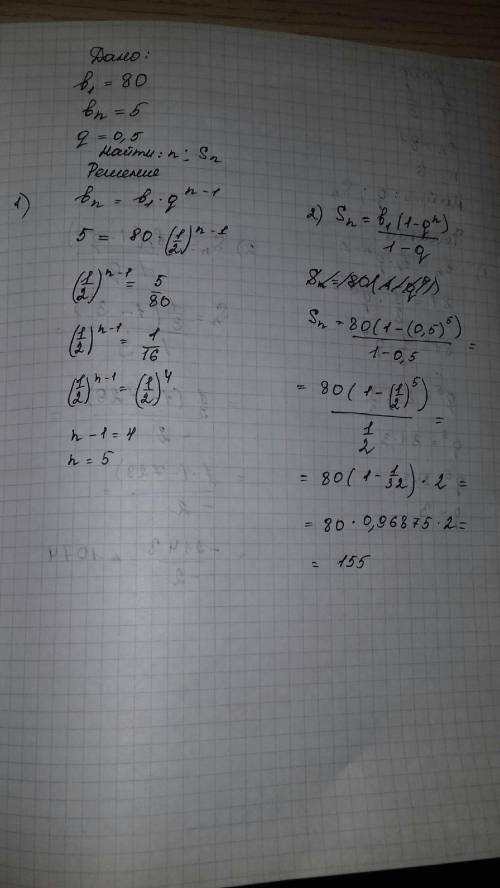 Дано:
b₁ = 80
bₙ = 5
q = 0,5
Найти: n; Sₙ
Решение
1) bₙ = b₁ · q^(n-1)
5 = 80 · (1/2)^(n-1)
(1/2)^(n-1) = 5/80
(1/2)^(n-1) = 1/16
(1/2)^(n-1) = (1/2)^4
n - 1 = 4
n = 5
2) Sₙ = b₁(1-qⁿ)/(1-q)
Sₙ = 80(1-(0,5)^5)/(1-0,5) =
= 80(1-(1/2)^5)/(1/2) =
= 80(1-1/32) · 2 =
= 80 · 0,96875 · 2 =
= 155